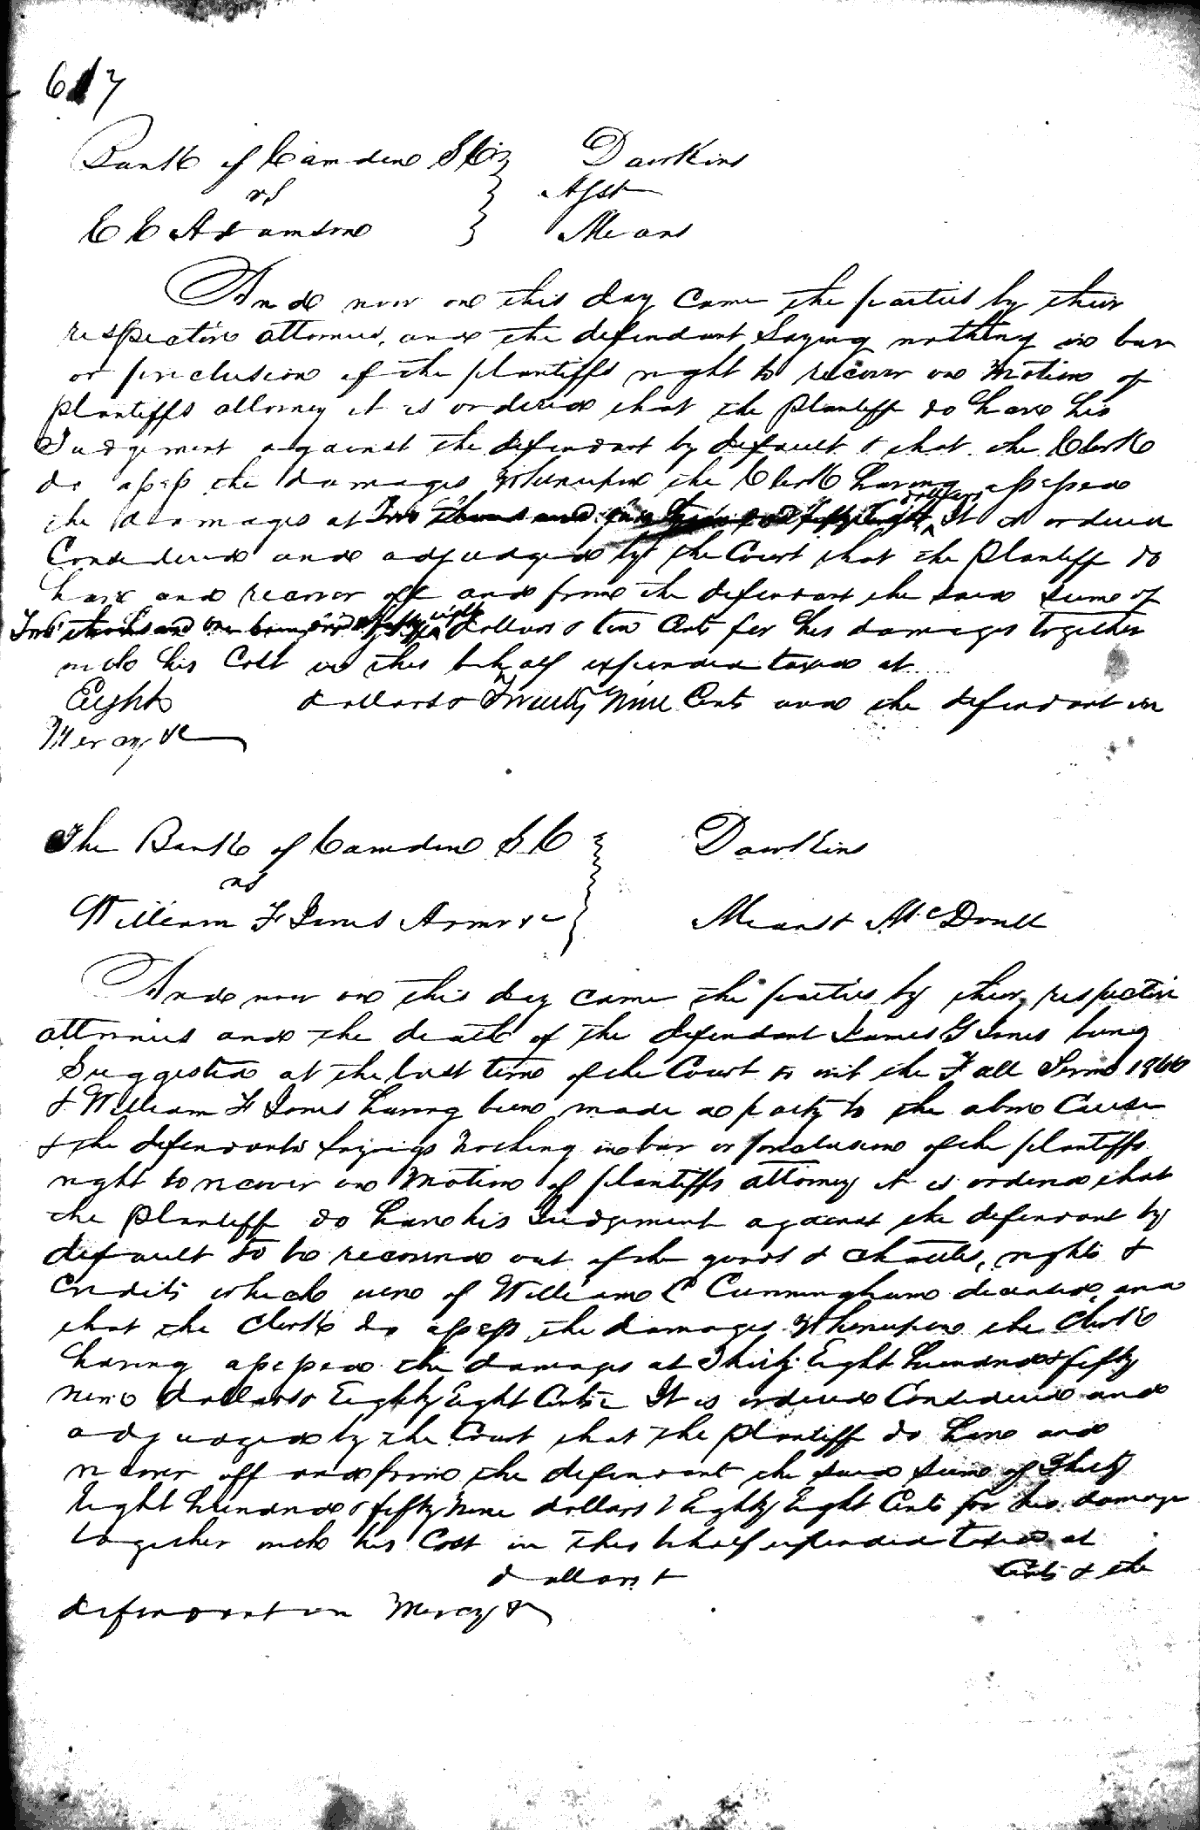 617
Bank of Camden S C } Dawkins
vs } Asst
C C Adamson } Means
And now on this day came the parties by their
respective attornies, and the defendant Saying nothing in bar
or preclusion of the plantiffs right to recover on Motion of
plantiffs attorney it is ordered that the Plantiff do have his
Judgement against the defendant by default & that the Clerk
do assess the damages Whereupon the Clerk having assessed
the damages at Two thousand dollars It is ordered
Considered and adjudged by the Court that the Plantiff do
have and recover off and from the defendant the said Sum of
Two thousand one hundred & fifty eight dollars & ten Cents for his damages together
with his Cost in this behalf expended taxed at
Eight dollars & Twenty Nine Cents and the defendant in
Mercy &c
The Bank of Camden S C } Dawkins
vs
William F Jones Admr &c } Means & McDowell
And now on this day came the parties by their respective
attornies and the death of the defendant James G Jones being
Suggested at the last term of the Court to wit the Fall Term 1860
& William F Jones having been made a party to the above Cause
& the defendants Sayings Nothing in bar or preclusion of the plantiffs
right to recover on Motion of plantiffs attorney it is ordered that
the Plantiff do have his Judgement against the defendant by
default to be recovered out of the goods & chattles, rights &
Credits which were of William C Cunningham deceased, and
that the Clerk do assess the damages Whereupon the Clerk
having assessed the damages at Thirty Eight hundred & fifty
nine dollars & Eighty Eight Cents It is ordered Considered and
adjudged by the Court that the Plantiff do have and
recover off and from the defendant the said Sum of Thirty
Eight hundred & fifty Nine dollars & Eighty Eight Cents for his damage
together with his Cost in this behalf expended taxed at
dollars & Cents & the
defendant in Mercy &c